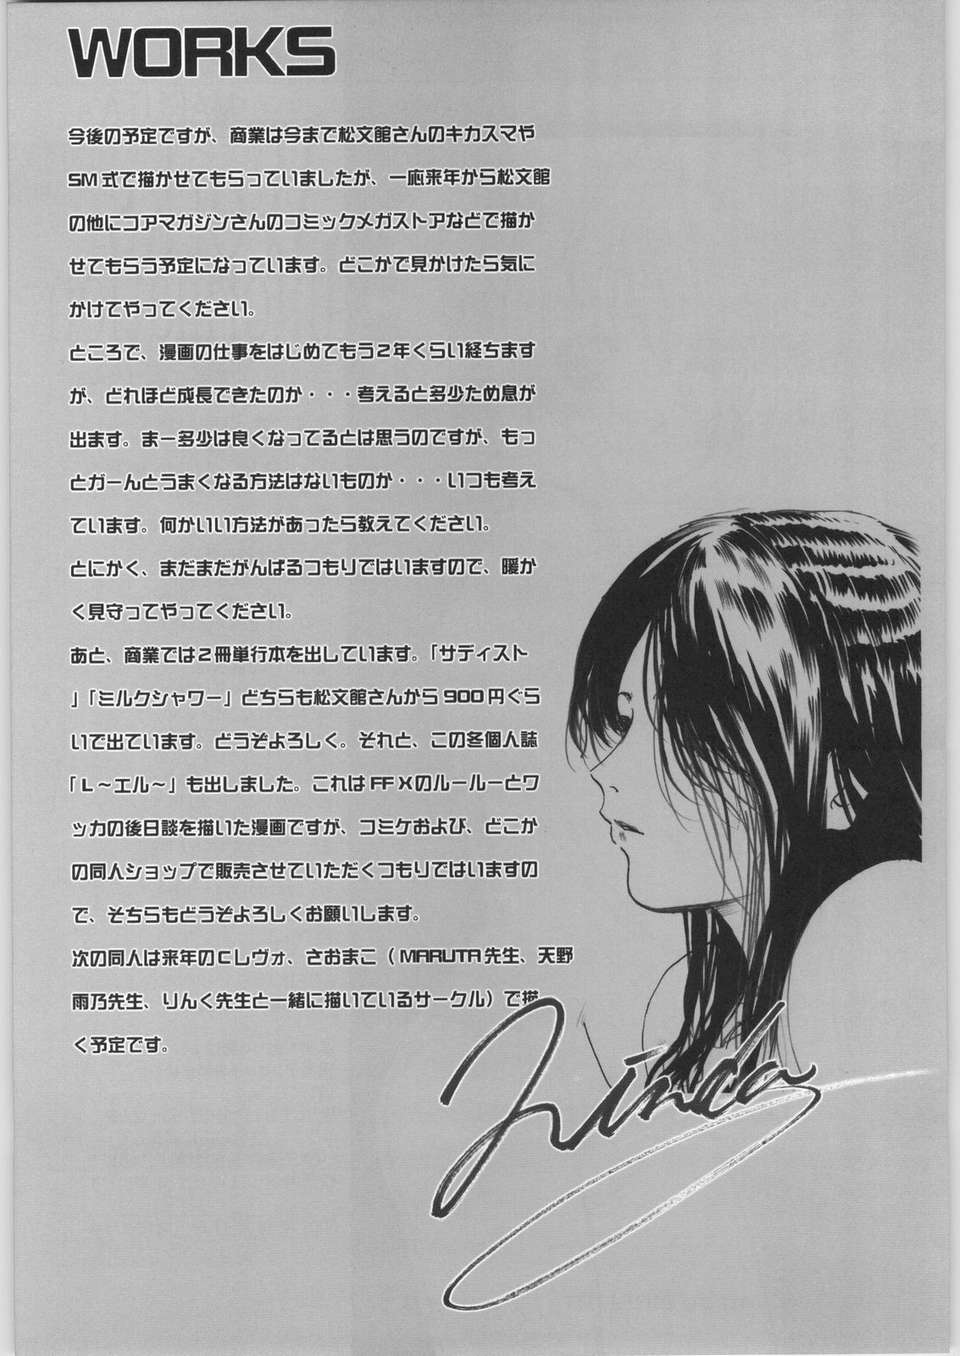 WORKS
今後の予定ですが、商業は今まで松文館さんのキカスマや
SM式で描かせてもらっていましたが、一応来年から松文館
の他にコアマガジンさんのコミックメガストアなどで描か
せてもらう予定になっています。どこかで見かけたら気に
かけてやってください。
ところで、漫画の仕事をはじめてもう2年くらい経ちます
が、どれほど成長できたのか・・・考えると多少ため息が
出ます。まー多少は良くなってるとは思うのですが、もっ
とガーんとうまくなる方法はないものか・・・いつも考え
ています。何かいい方法があったら教えてください。
とにかく、まだまだがんばるつもりではいますので、暖か
く見守ってやってください。
あと、商業では2冊単行本を出しています。「サディスト
」「ミルクシャワー」どちらも松文館さんから900円ぐら
いで出ています。どうぞよろしく。それと、この冬個人誌
「L～エル～」も出しました。これはFFXのルールーとワ
ッカの後日談を描いた漫画ですが、コミケおよび、どこか
の同人ショップで販売させていただくつもりではいますの
で、そちらもどうぞよろしくお願いします。
次の同人は来年のCレヴォ、さおまこ（MARUTA先生、天野
雨乃先生、りんく先生と一緒に描いているサークル）で描
く予定です。
Linda